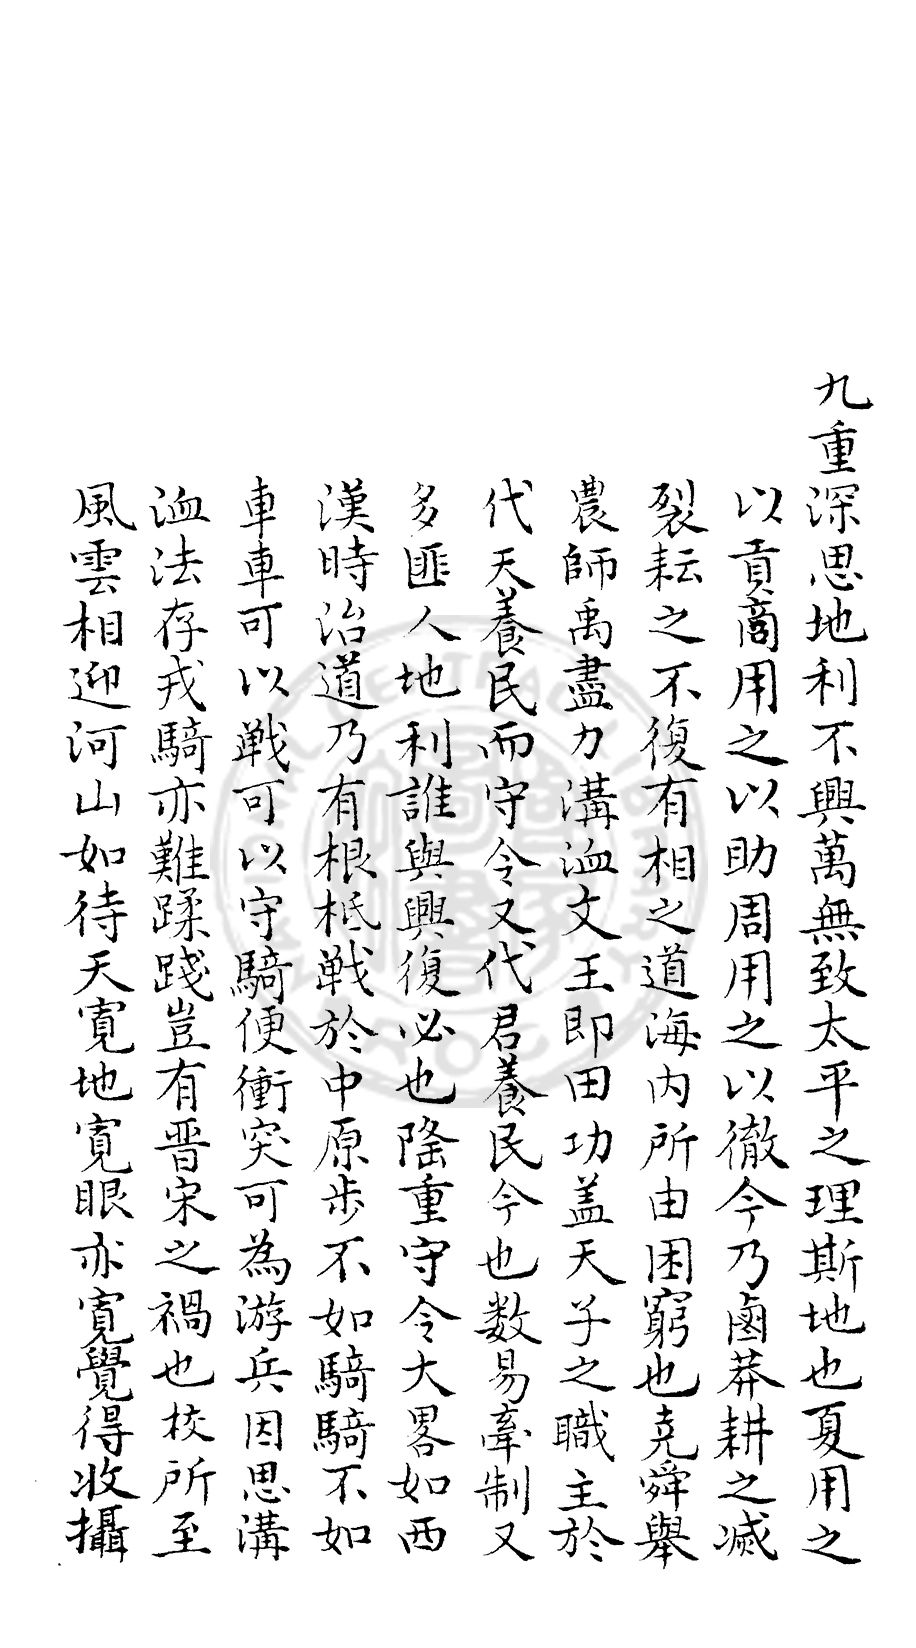 九重深思地利不興萬無致太平之理斯地也夏用之
以貢商用之以助周用之以徹今乃鹵莽耕之滅
裂耘之不復有相之道海内所由困窮也堯舜舉
農師禹盡力溝洫文王即田功盖天子之職主於
代天養民而守令又代君養民今也数易牽制又
多匪人地利誰與興復必也隆重守令大畧如西
漢時治道乃有根柢戰於中原步不如騎騎不如
車車可以戰可以守騎便衝突可為游兵因思溝
洫法存戎騎亦難蹂踐豈有晋宋之禍也校所至
風雲相迎河山如待天寛地寛眼亦寛覺得收攝